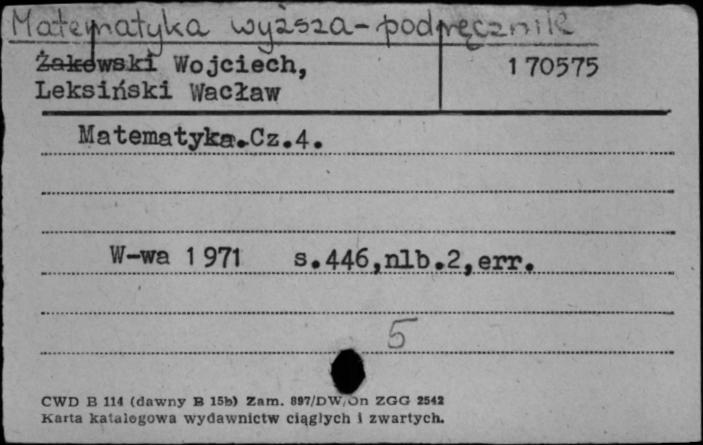 Matematyka wyższa - podręcznik
Żakowski Wojciech, 170575
Leksiński Wacław
Matematyka.Cz.4.
W-wa 1971 s.446,nlb.2,err.
5
CWD B 114 (dawny B 15b) Zam. 897/DW/On ZGG 2542
Karta katalogowa wydawnictw ciągłych i zwartych.